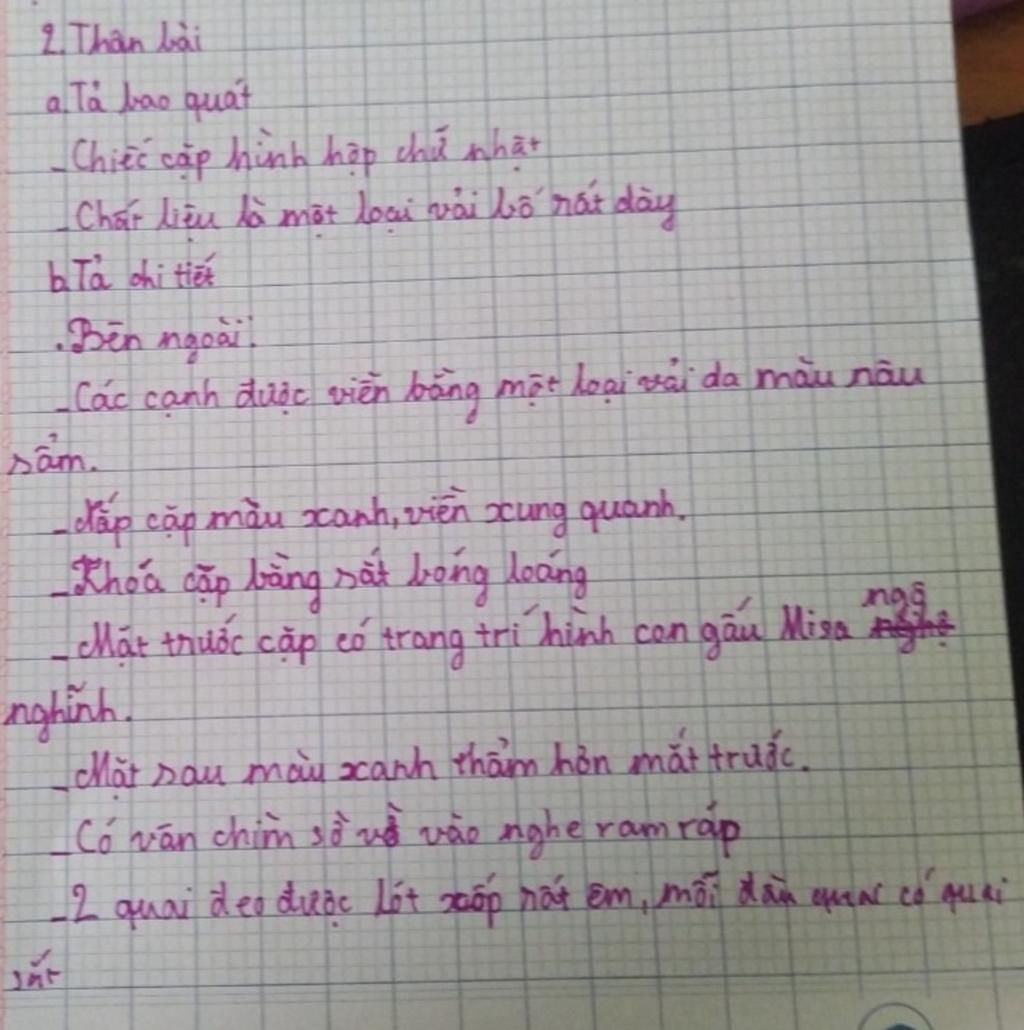 2. Thân bài
a. Tả bao quát
- Chiếc cặp hình hộp chữ nhật
- Chất liệu là một loại vải bố rất dày
b. Tả chi tiết
. Bên ngoài:
- Các cạnh được viền bằng một loại vải da màu nâu
sẩm.
- Nắp cặp màu xanh, viền xung quanh.
- Khoá cặp bằng sắt bóng loáng
- Mặt trước cặp có trang trí hình con gấu Misa ngộ
nghĩnh.
- Mặt sau màu xanh thẩm hơn mắt trước.
- Có vân chìm sờ vào nghe ram ráp
- 2 quai đeo được lót xốp rất êm, mỗi đầu quai có quai
sắt